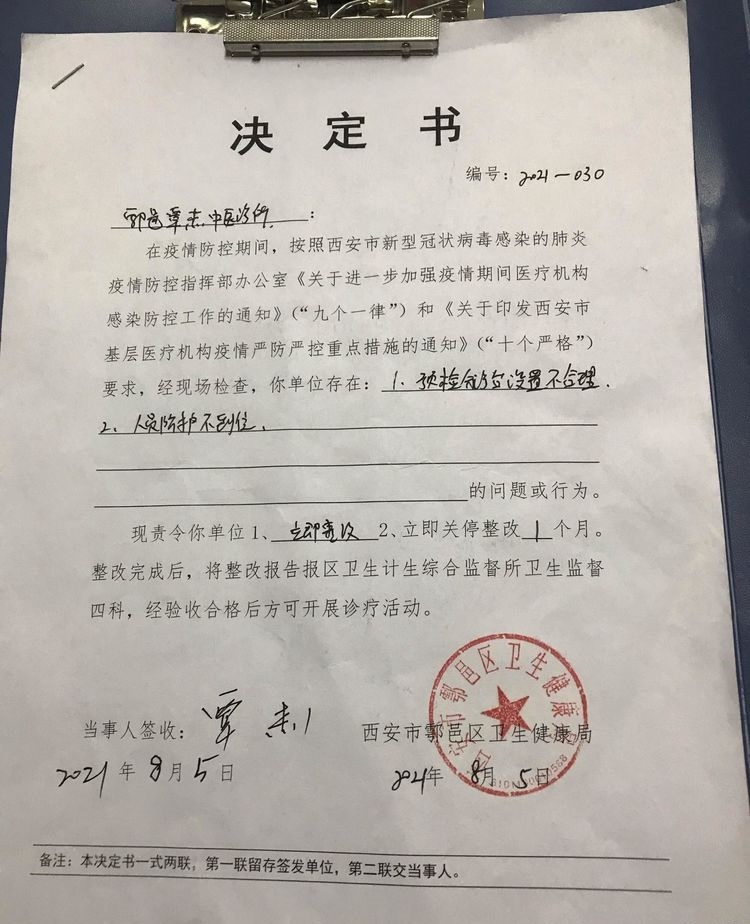 决定书
编号：2021—030
鄠邑覃杰中医诊所：
在疫情防控期间，按照西安市新型冠状病毒感染的肺炎
疫情防控指挥部办公室《关于进一步加强疫情期间医疗机构
感染防控工作的通知》(“九个一律”）和《关于印发西安市
基层医疗机构疫情严防严控重点措施的通知》(“十个严格”)
要求，经现场检查，你单位存在：1、预检分诊台设置不合理、
2、人员防护不到位、
的问题或行为。
现责令你单位1、立即整改 2、立即关停整改1个月。
整改完成后，将整改报告报区卫生计生综合监督所卫生监督
四科，经验收合格后方可开展诊疗活动。
西安市鄠邑区卫生健康局
当事人签收：覃杰 西安市鄠邑区卫生健康局
2021年8月5日 2021年8月5日
备注：本决定书一式两联，第一联留存签发单位，第二联交当事人。